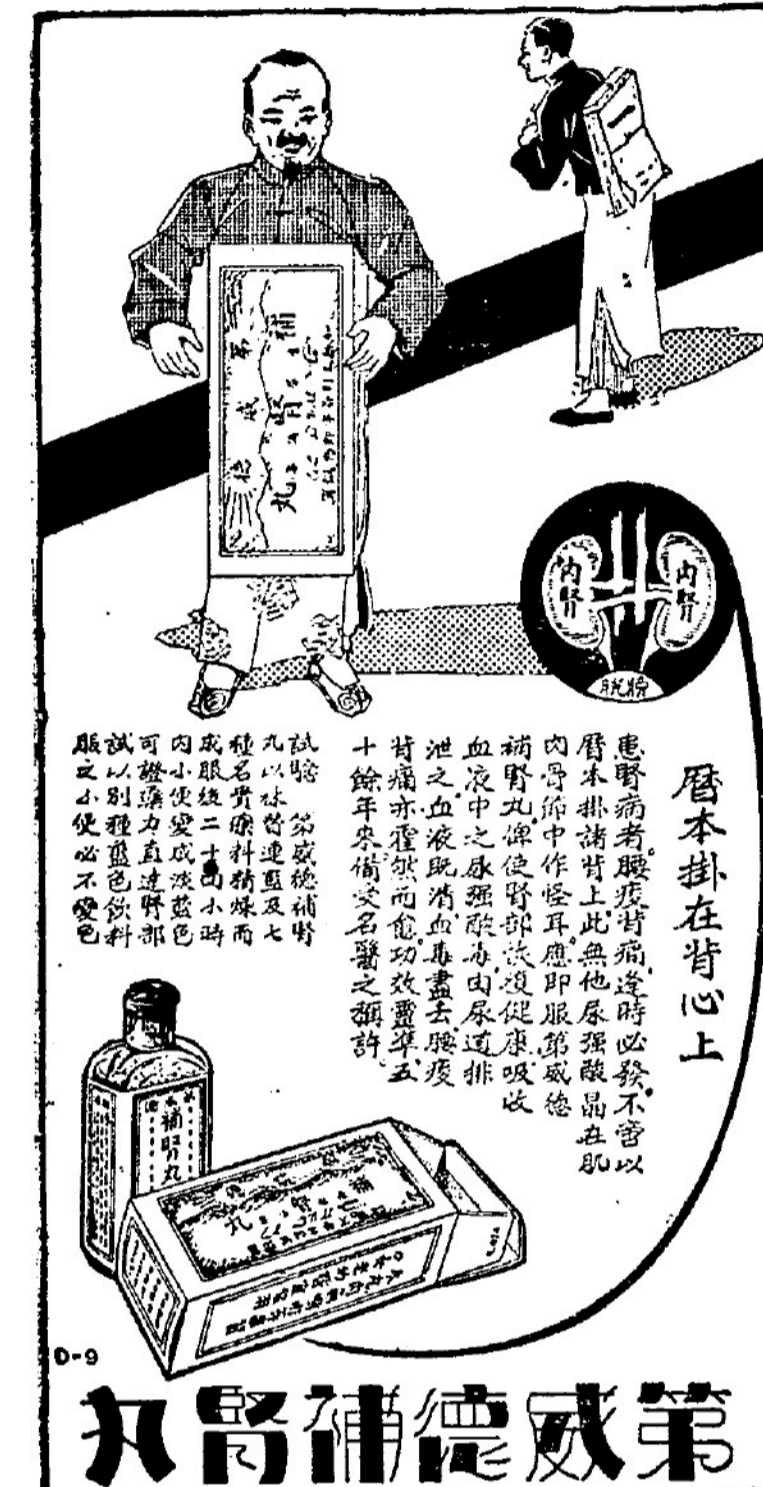 內腎
內腎
膀胱
曆本掛在背心上
患腎病者腰痠背痛逢時必發不啻以
曆本掛諸背上此無他尿强酸晶在肌
肉骨節中作怪耳應即服第威德
補腎丸俾使腎部恢復健康吸收
血液中之尿强酸毒由尿道排
泄之血液既清血毒盡去腰痠
背痛亦霍然而愈功效靈準五
十餘年來備受名醫之稱許
試驗 第威德補腎
丸以袪替連藍及七
種名貴藥料精煉而
成服後二十四小時
內小便變成淡藍色
可證藥力直達腎部
試以別種藍色飲料
服之小便必不變色
第威德
補腎丸
補腎丸
D-9
第威德補腎丸